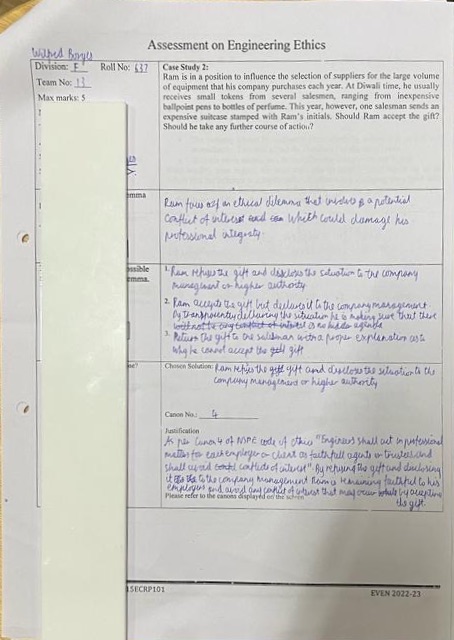 Assessment on Engineering Ethics
Wilfred Borges
Division: E Roll No: 637
Team No: 13
Max marks: 5
Case Study 2:
Ram is in a position to influence the selection of suppliers for the large volume
of equipment that his company purchases each year. At Diwali time, he usually
receives small tokens from several salesmen, ranging from inexpensive
ballpoint pens to bottles of perfume. This year, however, one salesman sends an
expensive suitcase stamped with Ram's initials. Should Ram accept the gift?
Should he take any further course of action?
emma
Ram faces an ethical dilemma that involves a potential
conflict of interest which could damage his
professional integrity.
ossible
emma.
1. Ram refuses the gift and discloses the situation to the company
management or higher authority
2. Ram accepts the gift but declares it to the company management
By transparently declaring the situation he is making sure that there
is no hidden agenda
3. Return the gift to the salesman with a proper explanation as to
why he cannot accept the gift
Chosen Solution: Ram refuses the gift and discloses the situation to the
company management or higher authority
Canon No.: 4
Justification
As per Canon 4 of NSPE code of ethics "Engineers shall act in professional
matters for each employer or client as faithfull agents or trustees and
shall avoid conflicts of interest". By refusing the gift and disclosing
it to the company management Ram is remaining faithful to his
employers and avoid any conflict of interest that may occur by accepting
the gift.
Please refer to the canons displayed on the screen
15ECRP101
EVEN 2022-23